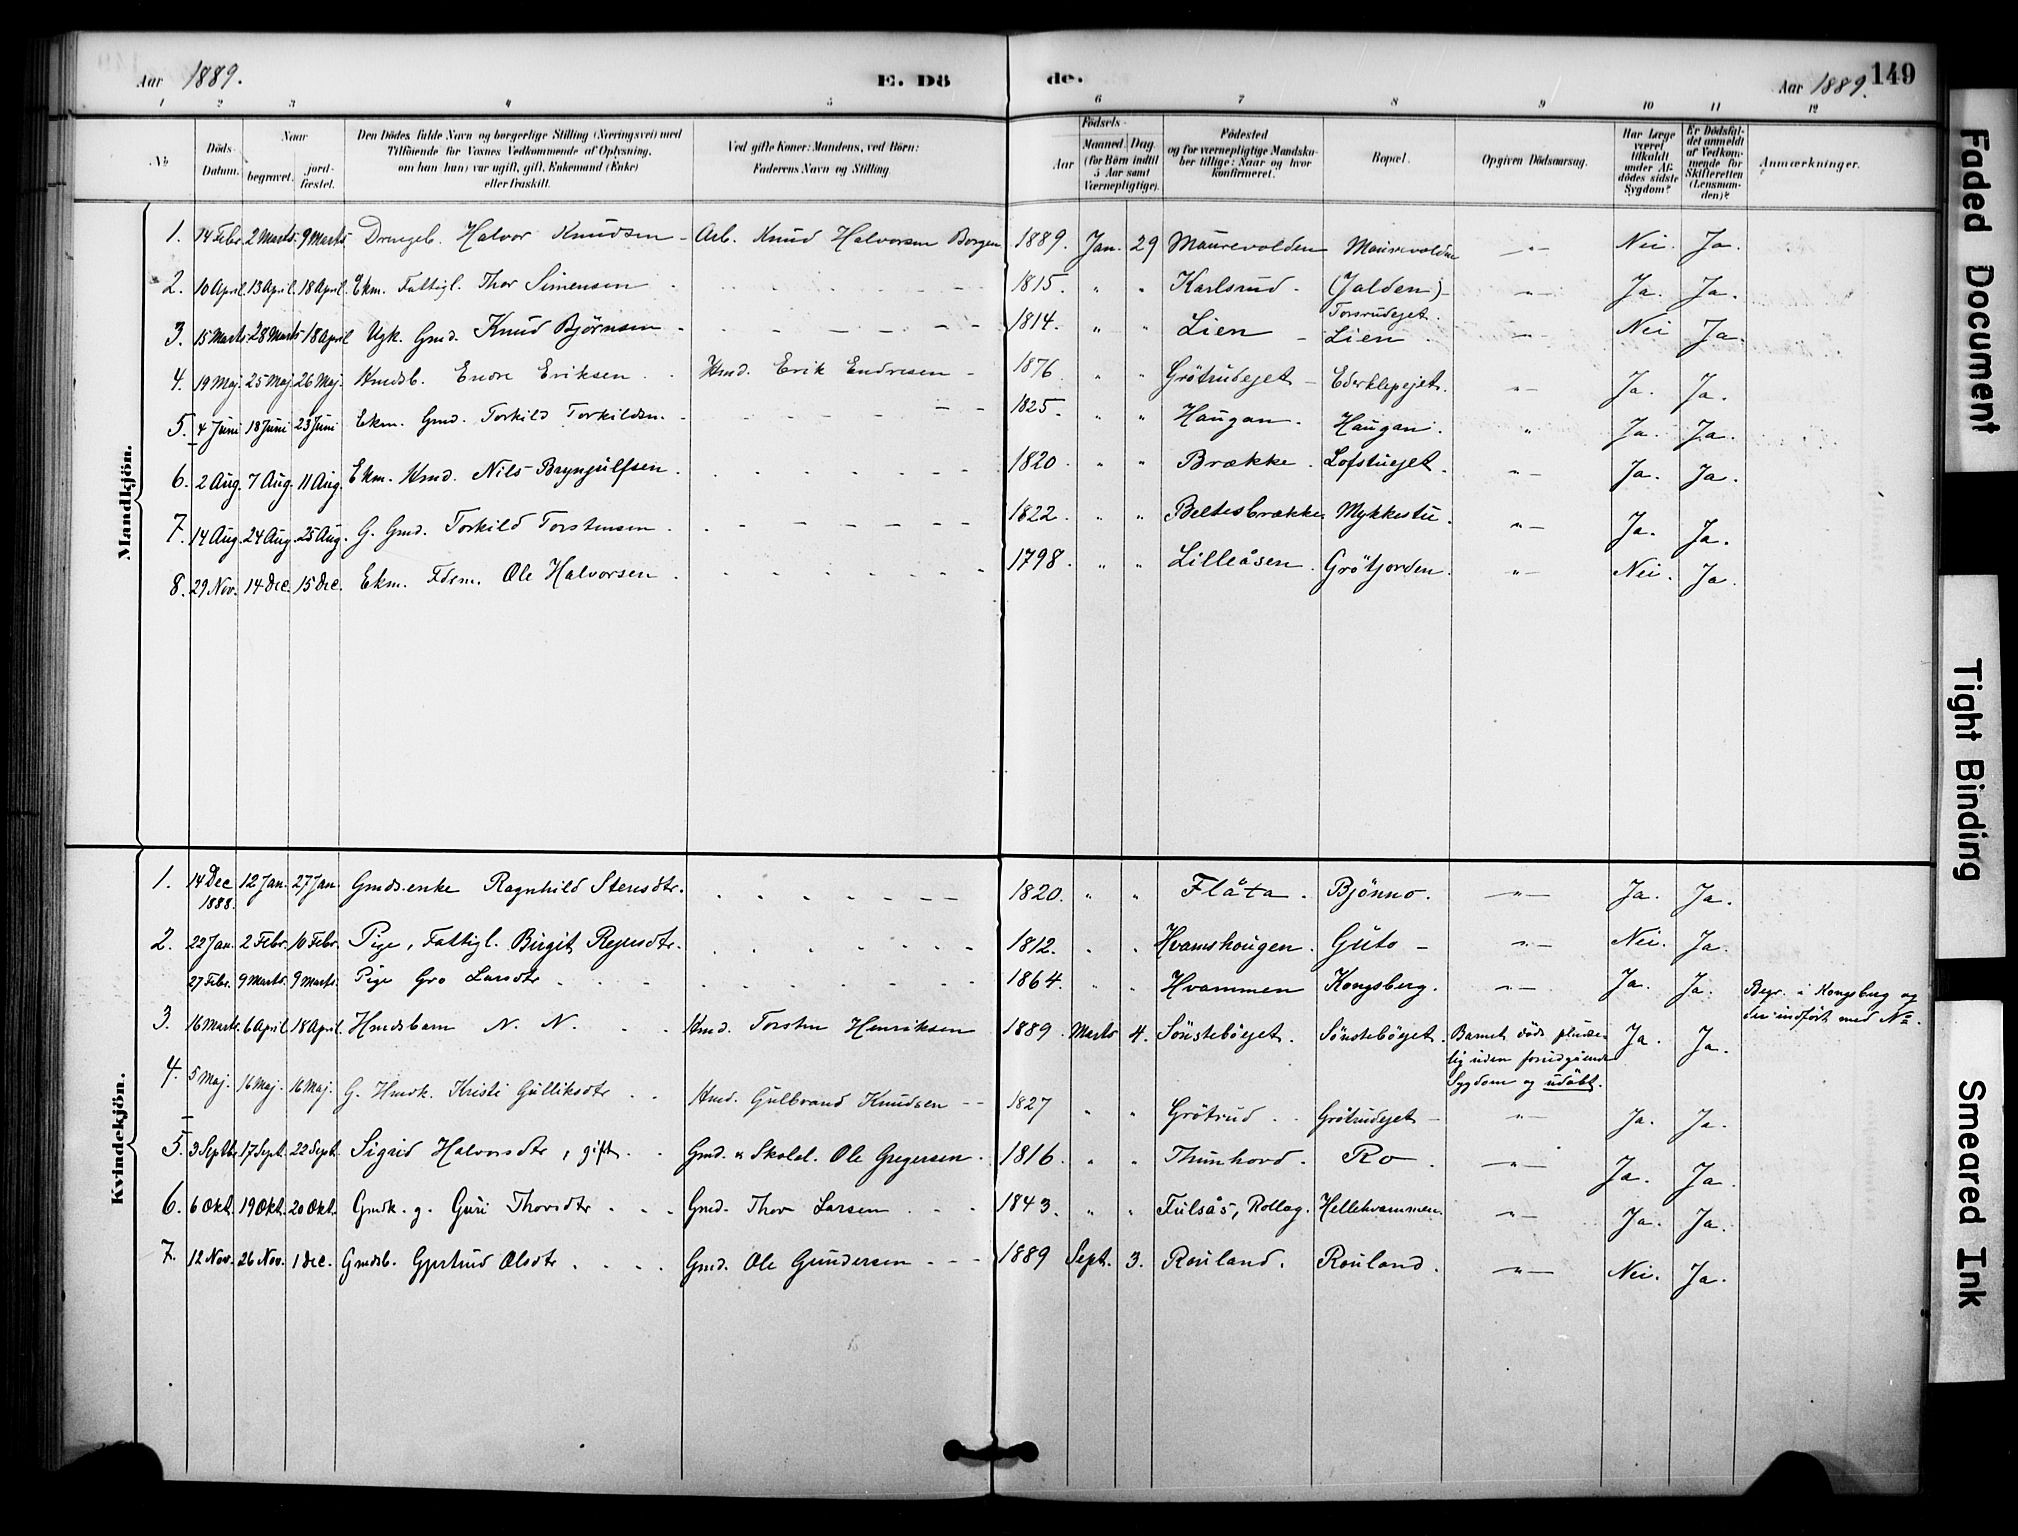 Aar 1889. E. Dö de. Aar 1889. 149
1 2 3 4 5 6 7 8 9 10 11 12
No Döds-Datum. Naar begravet. jordfæstet. Den Dödes fulde Navn og borgerlige Stilling (Næringsvei) med Tilföiende for Voxnes Vedkommende af Oplysning, om han (hun) var ugift, gift, Enkemand (Enke) eller fraskilt. Ved gifte Koner: Mandens, ved Börn: Faderens Navn og Stilling. Födsels- Aar Maaned. Dag. (for Börn indtil 5 Aar samt Værnepligtige). Födested og for værnepligtige Mandskaber tillige: Naar og hvor konfirmeret. Bopæl. Opgiven Dödsaarsag. Har Læge været tilkaldt under Afdödes sidste Sygdom? Er Dödsfaldet anmeldt af Vedkommende for Skifteretten (Lensmanden)? Anmærkninger.
Mandkjön.
1. 14 Febr. 2 Marts. 9 Marts Drengeb. Halvor Knudsen - Arb. Knud Halvorsen Borgen 1889. Jan. 29 Maurevolden Maurevolden -"- Nei. Ja.
2. 10 April. 13 April. 18 April. Ekm. Fattigl. Thor Simensen 1815. " " Karlsrud. (Jalden) Torsrudejet. -"- Ja. Ja.
3. 15 Marts. 28 Marts 18 April Ugk. Gmd. Knud Björnsen 1814. " " Lien Lien. -"- Nei Ja.
4. 19 Maj. 25 Maj. 26 Maj. Hmdsb. Endre Eriksen Hmd. Erik Endresen 1876 " " Grötrudejet Ederklepejet. -"- Ja. Ja.
5. 4 Juni 18 Juni 23 Juni Ekm. Gmd. Torkild Torkildsn. 1825. " " Haugan. Haugan. " Ja. Ja.
6. 2 Aug. 7 Aug. 11 Aug. Ekm. Hmd. Nils Bryngulfsen 1820. " " Brække. Lofstuejet. -"- Ja. Ja.
7. 14 Aug. 24 Aug. 25 Aug. G. Gmd. Torkild Torstensen 1822. " " Beltesbrække Mykkestu. -"- Ja. Ja.
8. 29 Nov. 14 Dec. 15 Dec. Ekm. Fdsm. Ole Halvorsen 1798. " " Lilleåsen. Grötjorden. -"- Nei. Ja.
Kvindekjön.
1. 14 Dec 1888. 12 Jan. 27 Jan. Gmds.enke Ragnhild Stensdtr. 1820. " " Flåta. Bjönno. -"- Ja. Ja.
2. 22 Jan. 2 Febr. 10 Febr. Pige, Fattigl. Birgit Rejersdtr. 1812. " " Hvamshougen. Guto -"- Nei. Ja.
27 Febr. 9 Marts. 9 Marts. Pige Gro Larsdtr 1864. " " Hvammen Kongsberg. -"- Ja. Ja. Begr. i Kongsberg og der indfört med No.
3. 16 Marts. 6 April. 18 April. Hmdsbarn N. N. Hmd. Torsten Henriksen 1889 Marts 4. Sönsteböejet. Sönsteböejet. Barnet döde pludselig uden forudgående Sygdom og udöbt. Ja. Ja.
4. 5 Maj. 16 Maj. 16 Maj. G. Hmdk. Kristi Gulliksdtr Hmd. Gulbrand Knudsen 1827 " " Grötrud. Grötrudejet -"- Ja. Ja.
5. 3 Septbr. 17 Sept. 22 Sept. Sigrid Halvorsdtr, gift. Gmd. & Skolel. Ole Gregersen. 1816. " " Thunhovd. Ro. -"- Ja. Ja.
6. 6 Okt. 19 Okt. 20 Okt. Gmdk. g. Guri Thorsdtr Gmd. Thor Larsen 1843. " " Fulsås, Rollag. Hellehvammen. -"- Ja. Ja.
7. 12 Nov. 26 Nov. 1 Dec. Gmdsb. Gjertrud Olsdtr Gmd. Ole Gundersen 1889 Sept. 3. Rouland. Rouland. -"- Nei. Ja.
Faded Document
Tight Binding
Smeared Ink